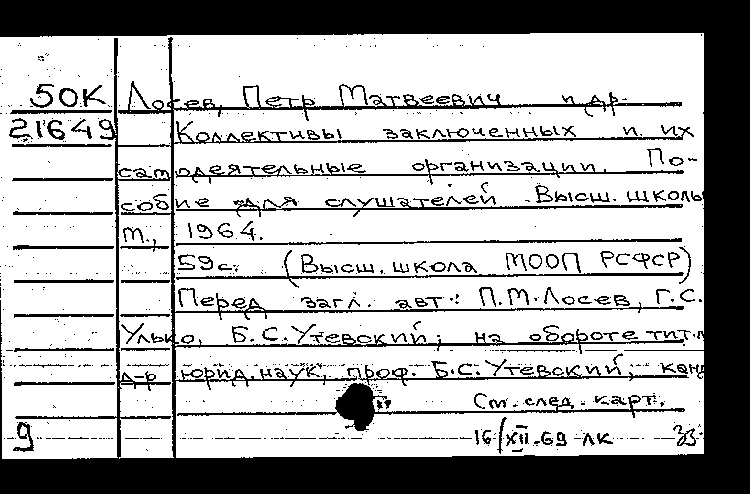 50К Лосев, Петр Матвеевич и др.
21649 Коллективы заключенных и их
самодеятельные организации. По-
собие для слушателей Высш. школы
М., 1964.
59с. (Высш. школа МООП РСФСР)
Перед загл. авт.: П.М.Лосев, Г.С.
Улько, Б.С.Утевский; на обороте тит.л
д-р юрид. наук, проф. Б.С.Утевский, канд
См. след. карт.
9 16/XII-69 ЛК 33